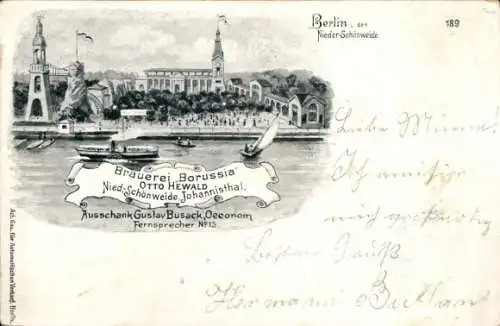 Berlin, den 189
Nieder-Schönweide.
Brauerei „Borussia"
OTTO HEWALD
Nied.-Schönweide, Johannisthal.
Ausschank Gustav Busack, Oeconom
Fernsprecher Nº 13.
Liebe Minna!
Ich amüsire
mich großartig
Besten Gruß
Hermann
Act. Ges. für Automatischen Verkauf, Berlin.